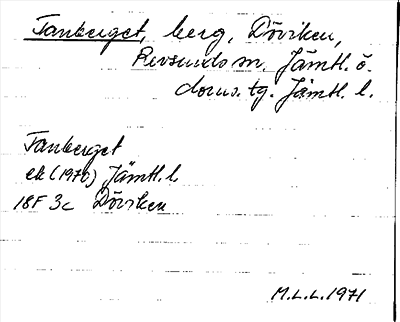 Tanberget, berg, Döviken,
Revsunds sn. Jämtl. ö.
doms. tg. Jämtl. l.
Tanberget
ek (1970) Jämtl. l
18F 3c Döviken
M.L.L. 1971